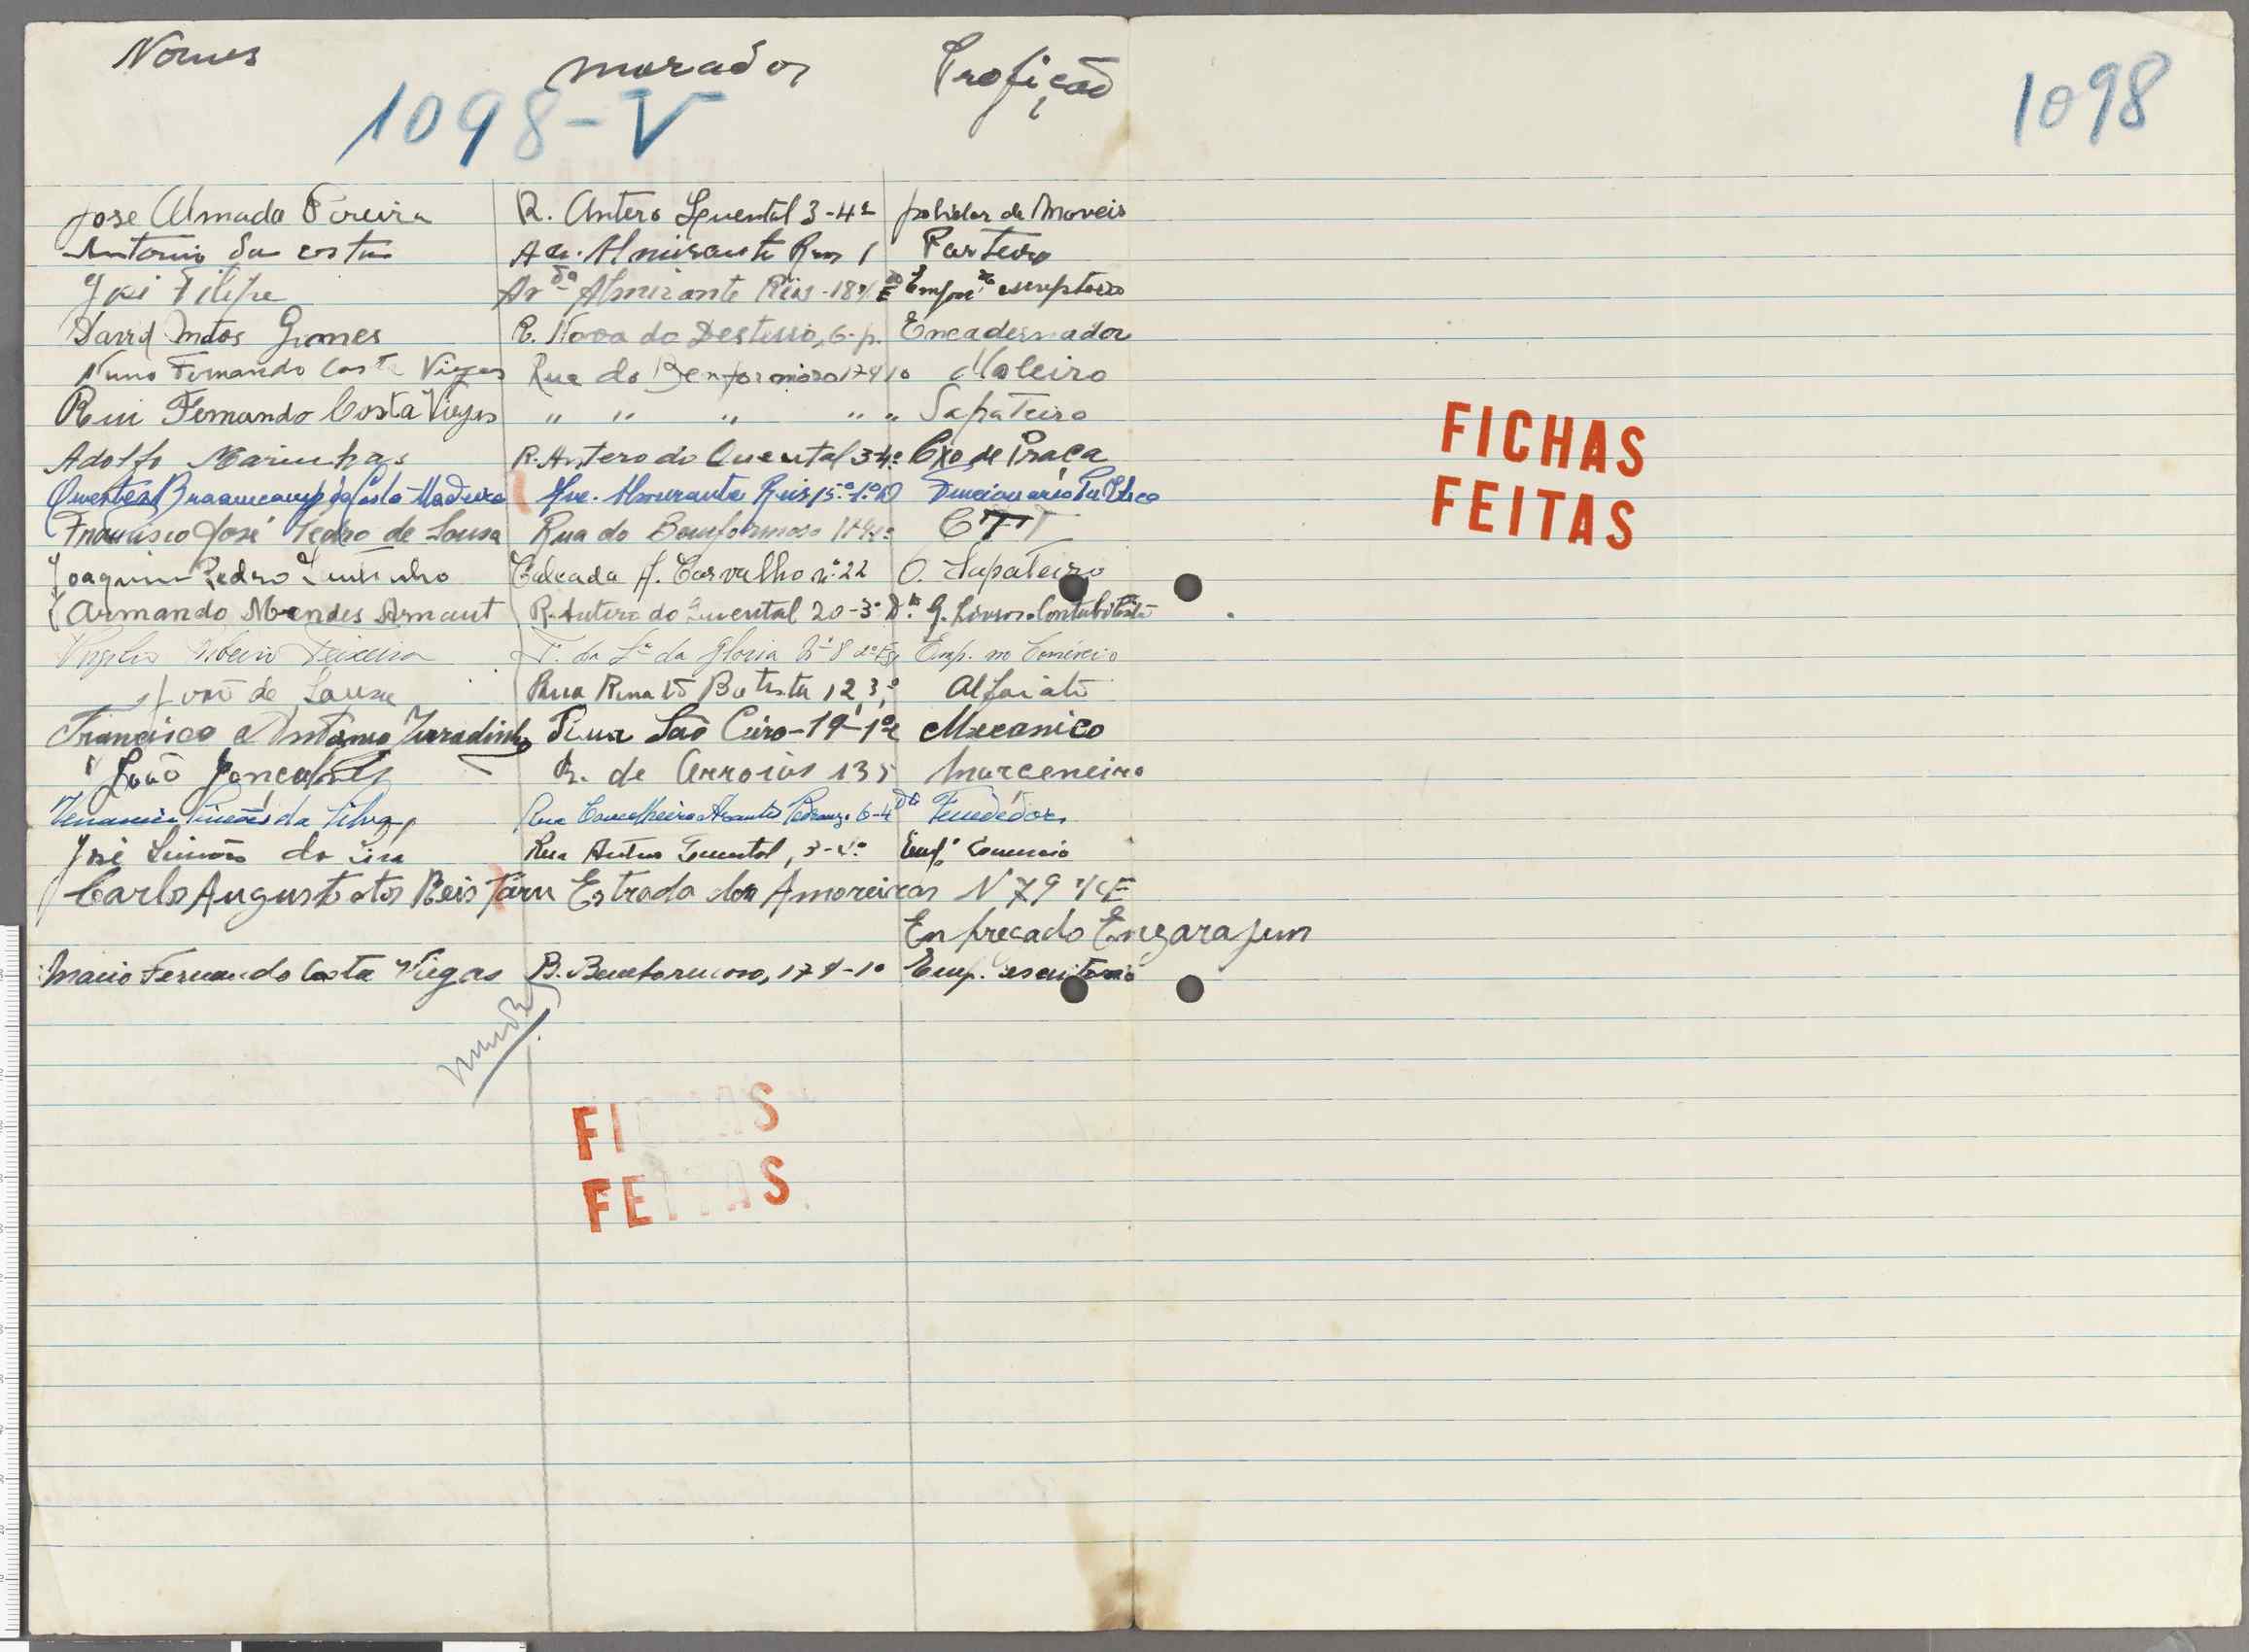 Nomes morador Profição
1098-V
1098
Jose Almada Pereira R. Antero Quental 3-4º polidor de Moveis
Antonio da costa Av. Almirante Reis 1 Porteiro
José Filipe Avda Almirante Reis-18 escriptorio
David Matos Gomes R. Nova do Desterro, 6-p. Encadernador
Nuno Fernando Costa Viegas Rua do Benformoso 174 1o Maleiro
Rui Fernando Costa Viegas " " " " " Sapateiro
Adolfo Marinhas R. Antero do Quental 3-4º de Praça
FICHAS
Quental Braamcamp da Costa Madeira Ave. Almirante Reis 15-1º D Funcionario Publico
Francisco José Pedro de Sousa Rua do Bemformoso CTT
FEITAS
Joaquim Pedro Calcada A. Carvalho nº 22 O. Sapateiro
Armando Mendes Arnaut R. Antero do Quental 20-3º D. G. Livros Contabilista
Virgilio Ribeiro Teixeira T. da Gloria Nº 8 Emp. no Comércio
de Sousa Rua Batista 12, 3º Alfaiate
Francisco Antonio Rua São Ciro-19-1º Mecanico
João Gonçalves R. de Arroios 135 Marceneiro
Venancio Simões da Silva Rua Conselheiro Arantes Pedroso 6-4
José Simões da Rua Antero Quental, 3-4º Empº Comercio
Carlos Augusto dos Reis Estrada das Amoreiras N 79
Enpregado Engarajem
Mario Fernando Costa Viegas R. Benformoso, 174-1o Emp. escritorio
FICHAS
FEITAS